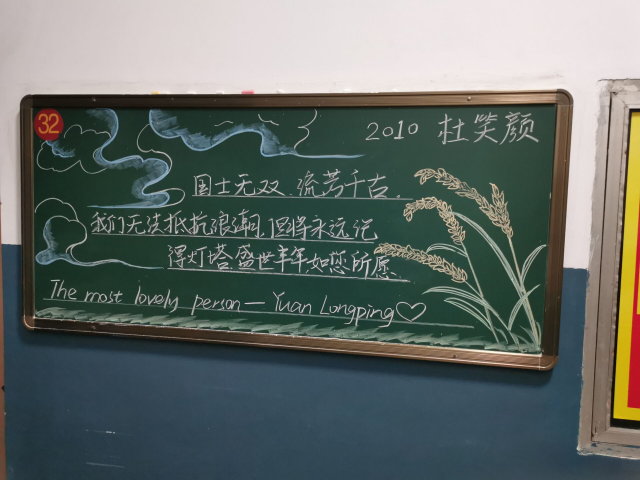 32
2010 杜笑颜
国士无双 流芳千古
我们无法抵抗浪潮,但将永远记
得灯塔.盛世丰年如您所愿.
The most lovely person — Yuan Longping♡